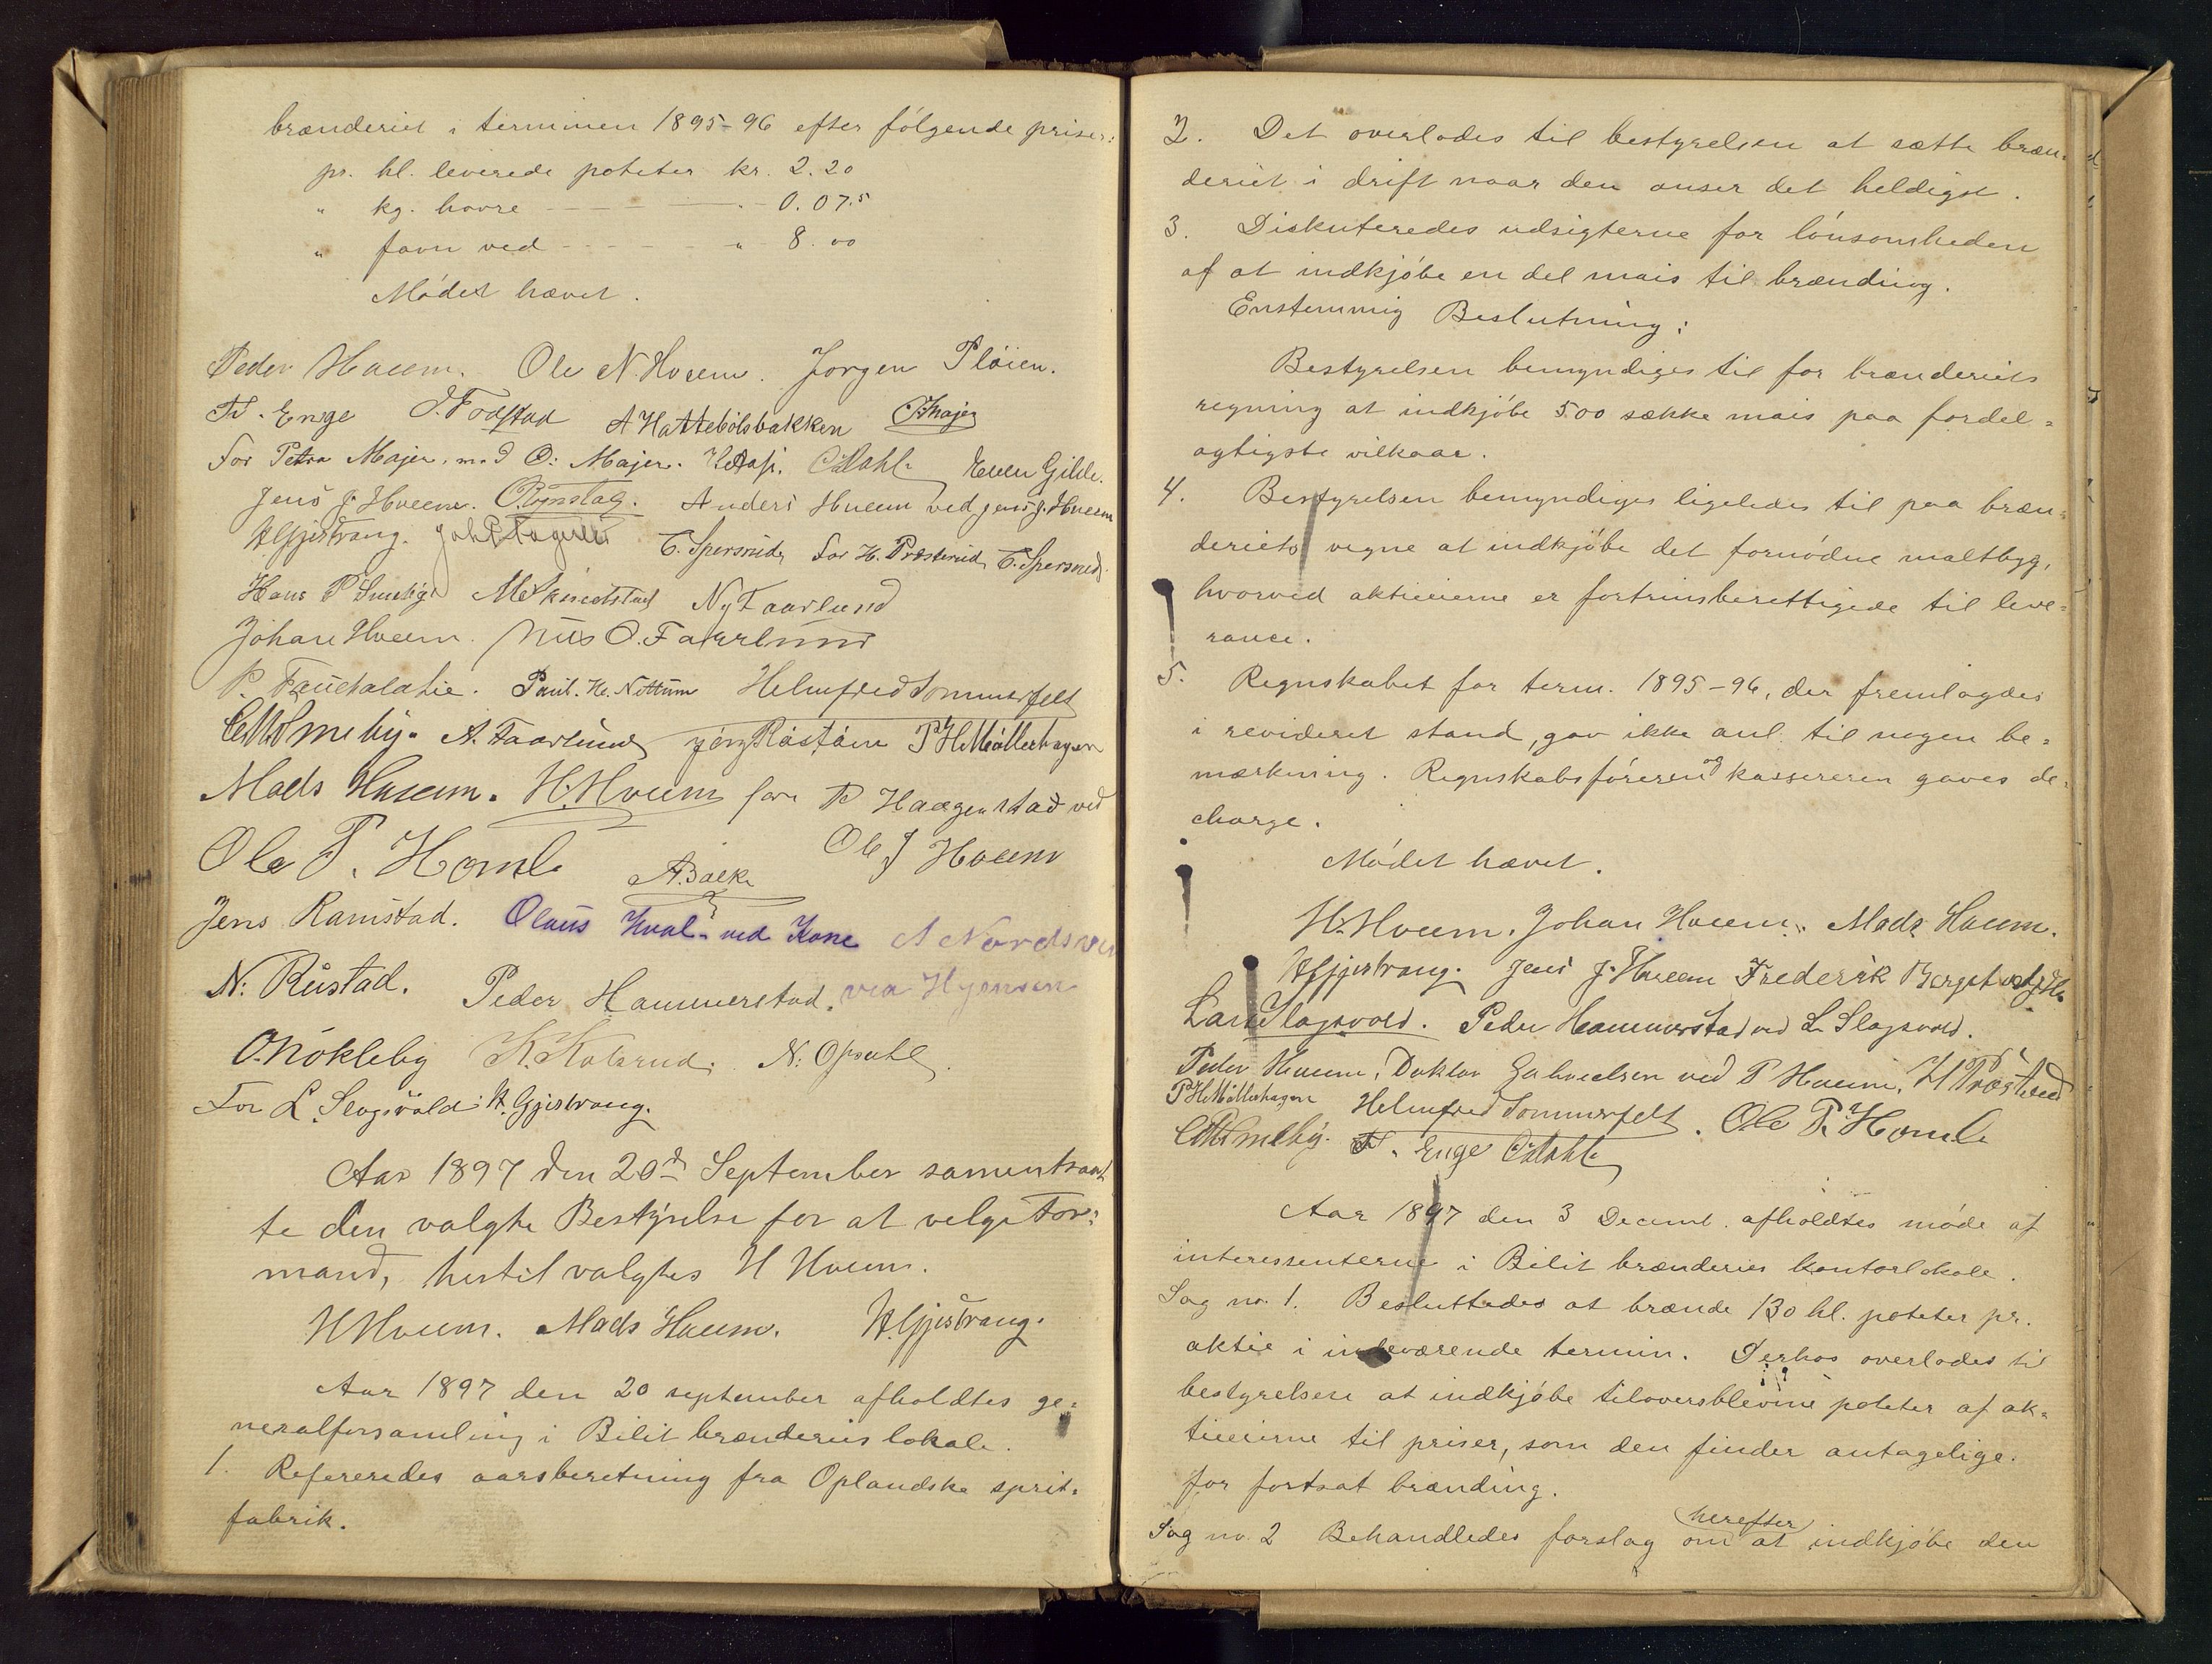 brænderiet i terminen 1895-96 efter følgende priser:
pr. hl. leverede poteter kr. 2.20
" kg. havre - - - - - " - 0.07.5
" favn ved - - - - - " 8.00
Mødet hævet.
Peder Hveem. Ole N. Hveem. Jørgen Pløien.
Th. Enge O. Fodstad A Hattebölsbakken Majer
For Petra Majer, ved O. Majer. C Dahl Even Gihle.
Jens J. Hveem. Anders Hveem ved Jens J. Hveem
H Gjistvang. C. Spersrud, for H. Præsterud, C. Spersrud.
Hans P Smeby M Skjredstad N Faarlund
Johan Hveem. Nils O. Faarlund
P. Fauchalatie. Paul. H. Nettum Helmfred Sommerfelt
C M Smeby. A. Faarlund Jörg Råståen P H Möllerhagen
Mads Hveem. H. Hveem for P Haagenstad ved
Ole T. Homle A. Balke Ole J Hveem
Jens Ramstad. Olaus Hval. ved Kone A Nordsve
N. Rustad. Peder Hammerstad. ved H Jensen
O. Nökleby K. Kolsrud. N. Opsahl.
For L. Slagsvold: H. Gjistvang.
Aar 1897 den 20d September samentraad
te den valgte Bestyrelse for at velge For-
mand, hertil valgtes H Hveem.
H Hveem. Mads Hveem. H. Gjistvang.
Aar 1897 den 20 september afholdtes ge-
neralforsamling i Bilit brænderies lokale.
1. Refereredes aarsberetning fra Oplandske sprit-
fabrik.
2. Det overlodes til bestyrelsen at sætte bræn-
deriet i drift naar den anser det heldigst.
3. Diskuteredes udsigterne for lönsomheden
af at indkjøbe en del mais til brænding.
Enstemmig Beslutning:
Bestyrelsen bemyndiges til for brænderiets
regning at indkjøbe 500 sække mais paa fordel-
agtigste vilkaar.
4. Bestyrelsen bemyndiges ligeledes til paa bræn-
deriets vegne at indkjøbe det fornødne maltbyg,
hvorved aktieeierne er fortrinsberettigede til leve-
rance.
5. Regnskabet for term. 1895-96, der fremlagdes
i revideret stand, gav ikke anl. til nogen be-
mærkning. Regnskabsføreren og kassereren gaves de-
charge.
Mødet hævet.
H. Hveem. Johan Hveem. Mads Hveem.
H Gjistvang. Jens J. Hveem Frederik Berget ved J. H.
Lars Slagsvold. Peder Hammerstad ved L Slagsvold.
Peder Hveem. Doktor Gabrielsen ved P Hveem. H Præsterud
P H Möllerhagen Helmfred Sommerfelt. Ole T. Homle
C M Smeby. Th. Enge C Dahl
Aar 1897 den 3 Decemb. afholdtes møde af
interessenterne i Bilit brænderies kontorlokale.
Sag no. 1. Besluttedes at brænde 130 hl. poteter pr.
aktie i indeværende termin. Derhos overlodes til
bestyrelsen at indkjøbe tiloversblevne poteter af ak-
tieeierne til priser, som den finder antagelige.
for fortsat brænding.
Sag no. 2 Behandledes forslag om herefter at indkjøbe den